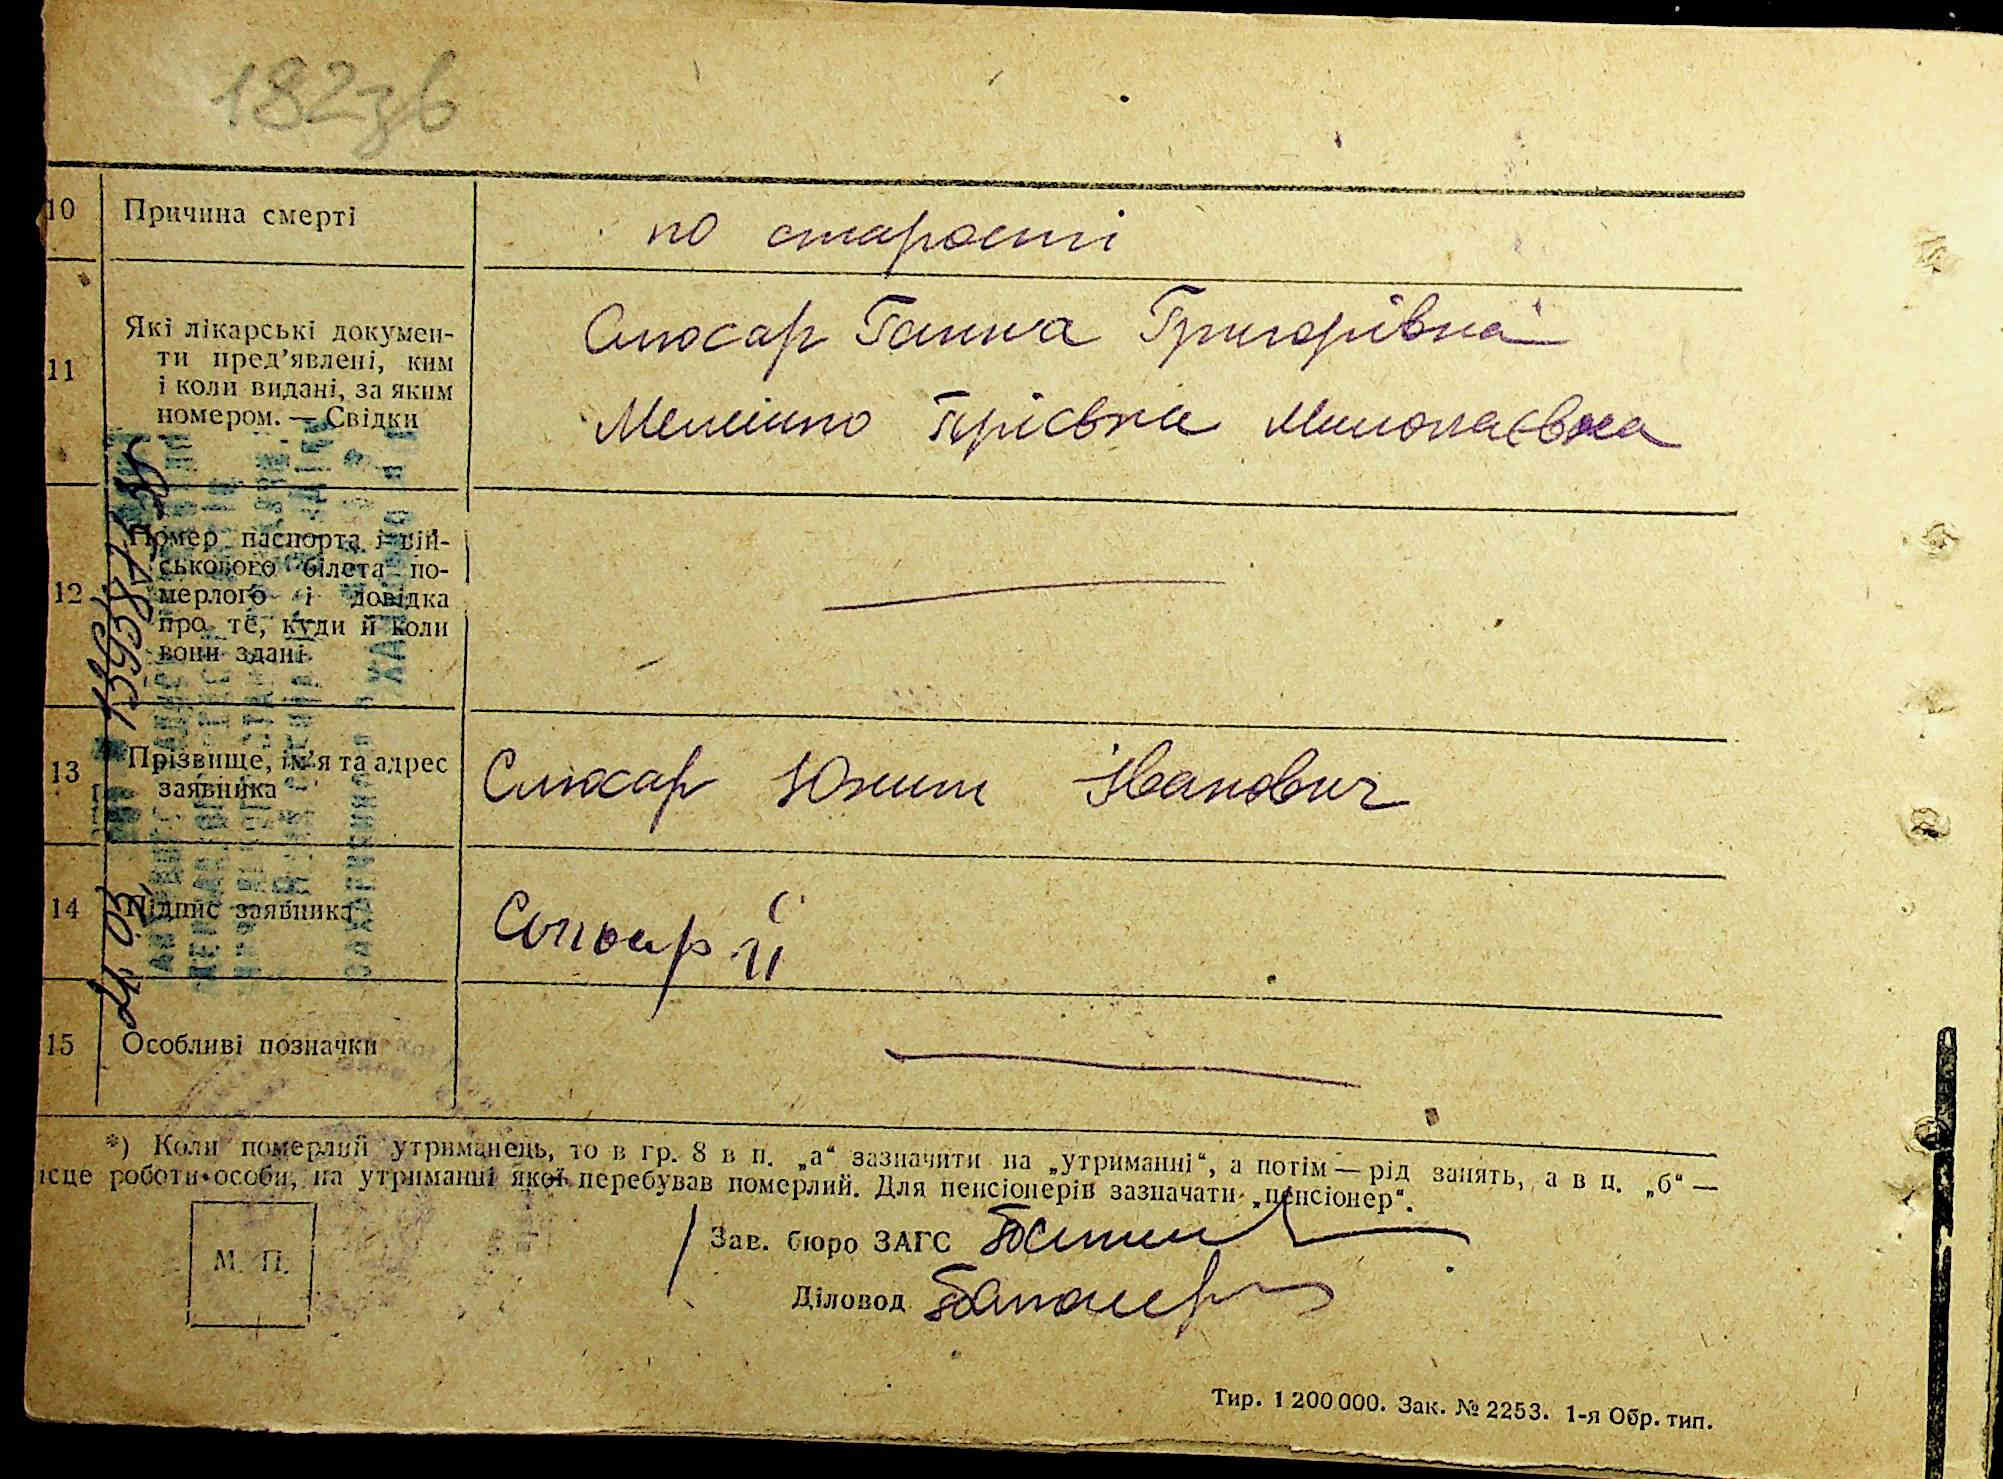 182зв
10 Причина смерті по старости
11 Які лікарські докумен-
ти пред’явлені, ким
і коли видані, за яким
номером. — Свідки
Слюсар Ганна Григорівна
Миколаєвна
12 Номер паспорта і вій-
ськового білета по-
мерлого і довідка
про те, куди й коли
вони здані
13 Прізвище, ім’я та адрес
заявника
Слюсар Юхим Іванович
14 Підпис заявника Слюсар
15 Особливі позначки
*) Коли померлий утриманець, то в гр. 8 в п. „а“ зазначити на „утриманні“, а потім — рід занять, а в п. „б“ —
ісце роботи особи, на утриманні якої перебував померлий. Для пенсіонерів зазначати „пенсіонер“.
М. П.
Зав. бюро ЗАГС
Діловод
Тир. 1 200 000. Зак. № 2253. 1-я Обр. тип.